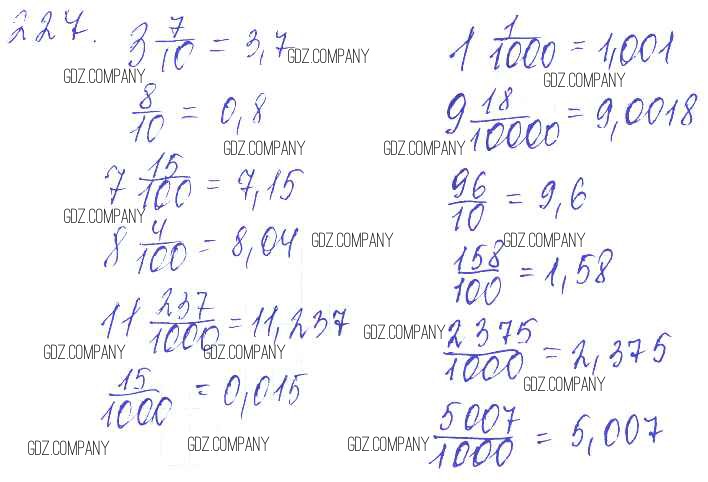 227.
3 7/10 = 3,7
GDZ.COMPANY
GDZ.COMPANY
8/10 = 0,8
GDZ.COMPANY
7 15/100 = 7,15
GDZ.COMPANY
8 4/100 = 8,04
GDZ.COMPANY
11 237/1000 = 11,237
GDZ.COMPANY
GDZ.COMPANY
15/1000 = 0,015
GDZ.COMPANY
GDZ.COMPANY
1 1/1000 = 1,001
GDZ.COMPANY
9 18/10000 = 9,0018
GDZ.COMPANY
96/10 = 9,6
GDZ.COMPANY
158/100 = 1,58
GDZ.COMPANY
2375/1000 = 2,375
GDZ.COMPANY
5007/1000 = 5,007
GDZ.COMPANY